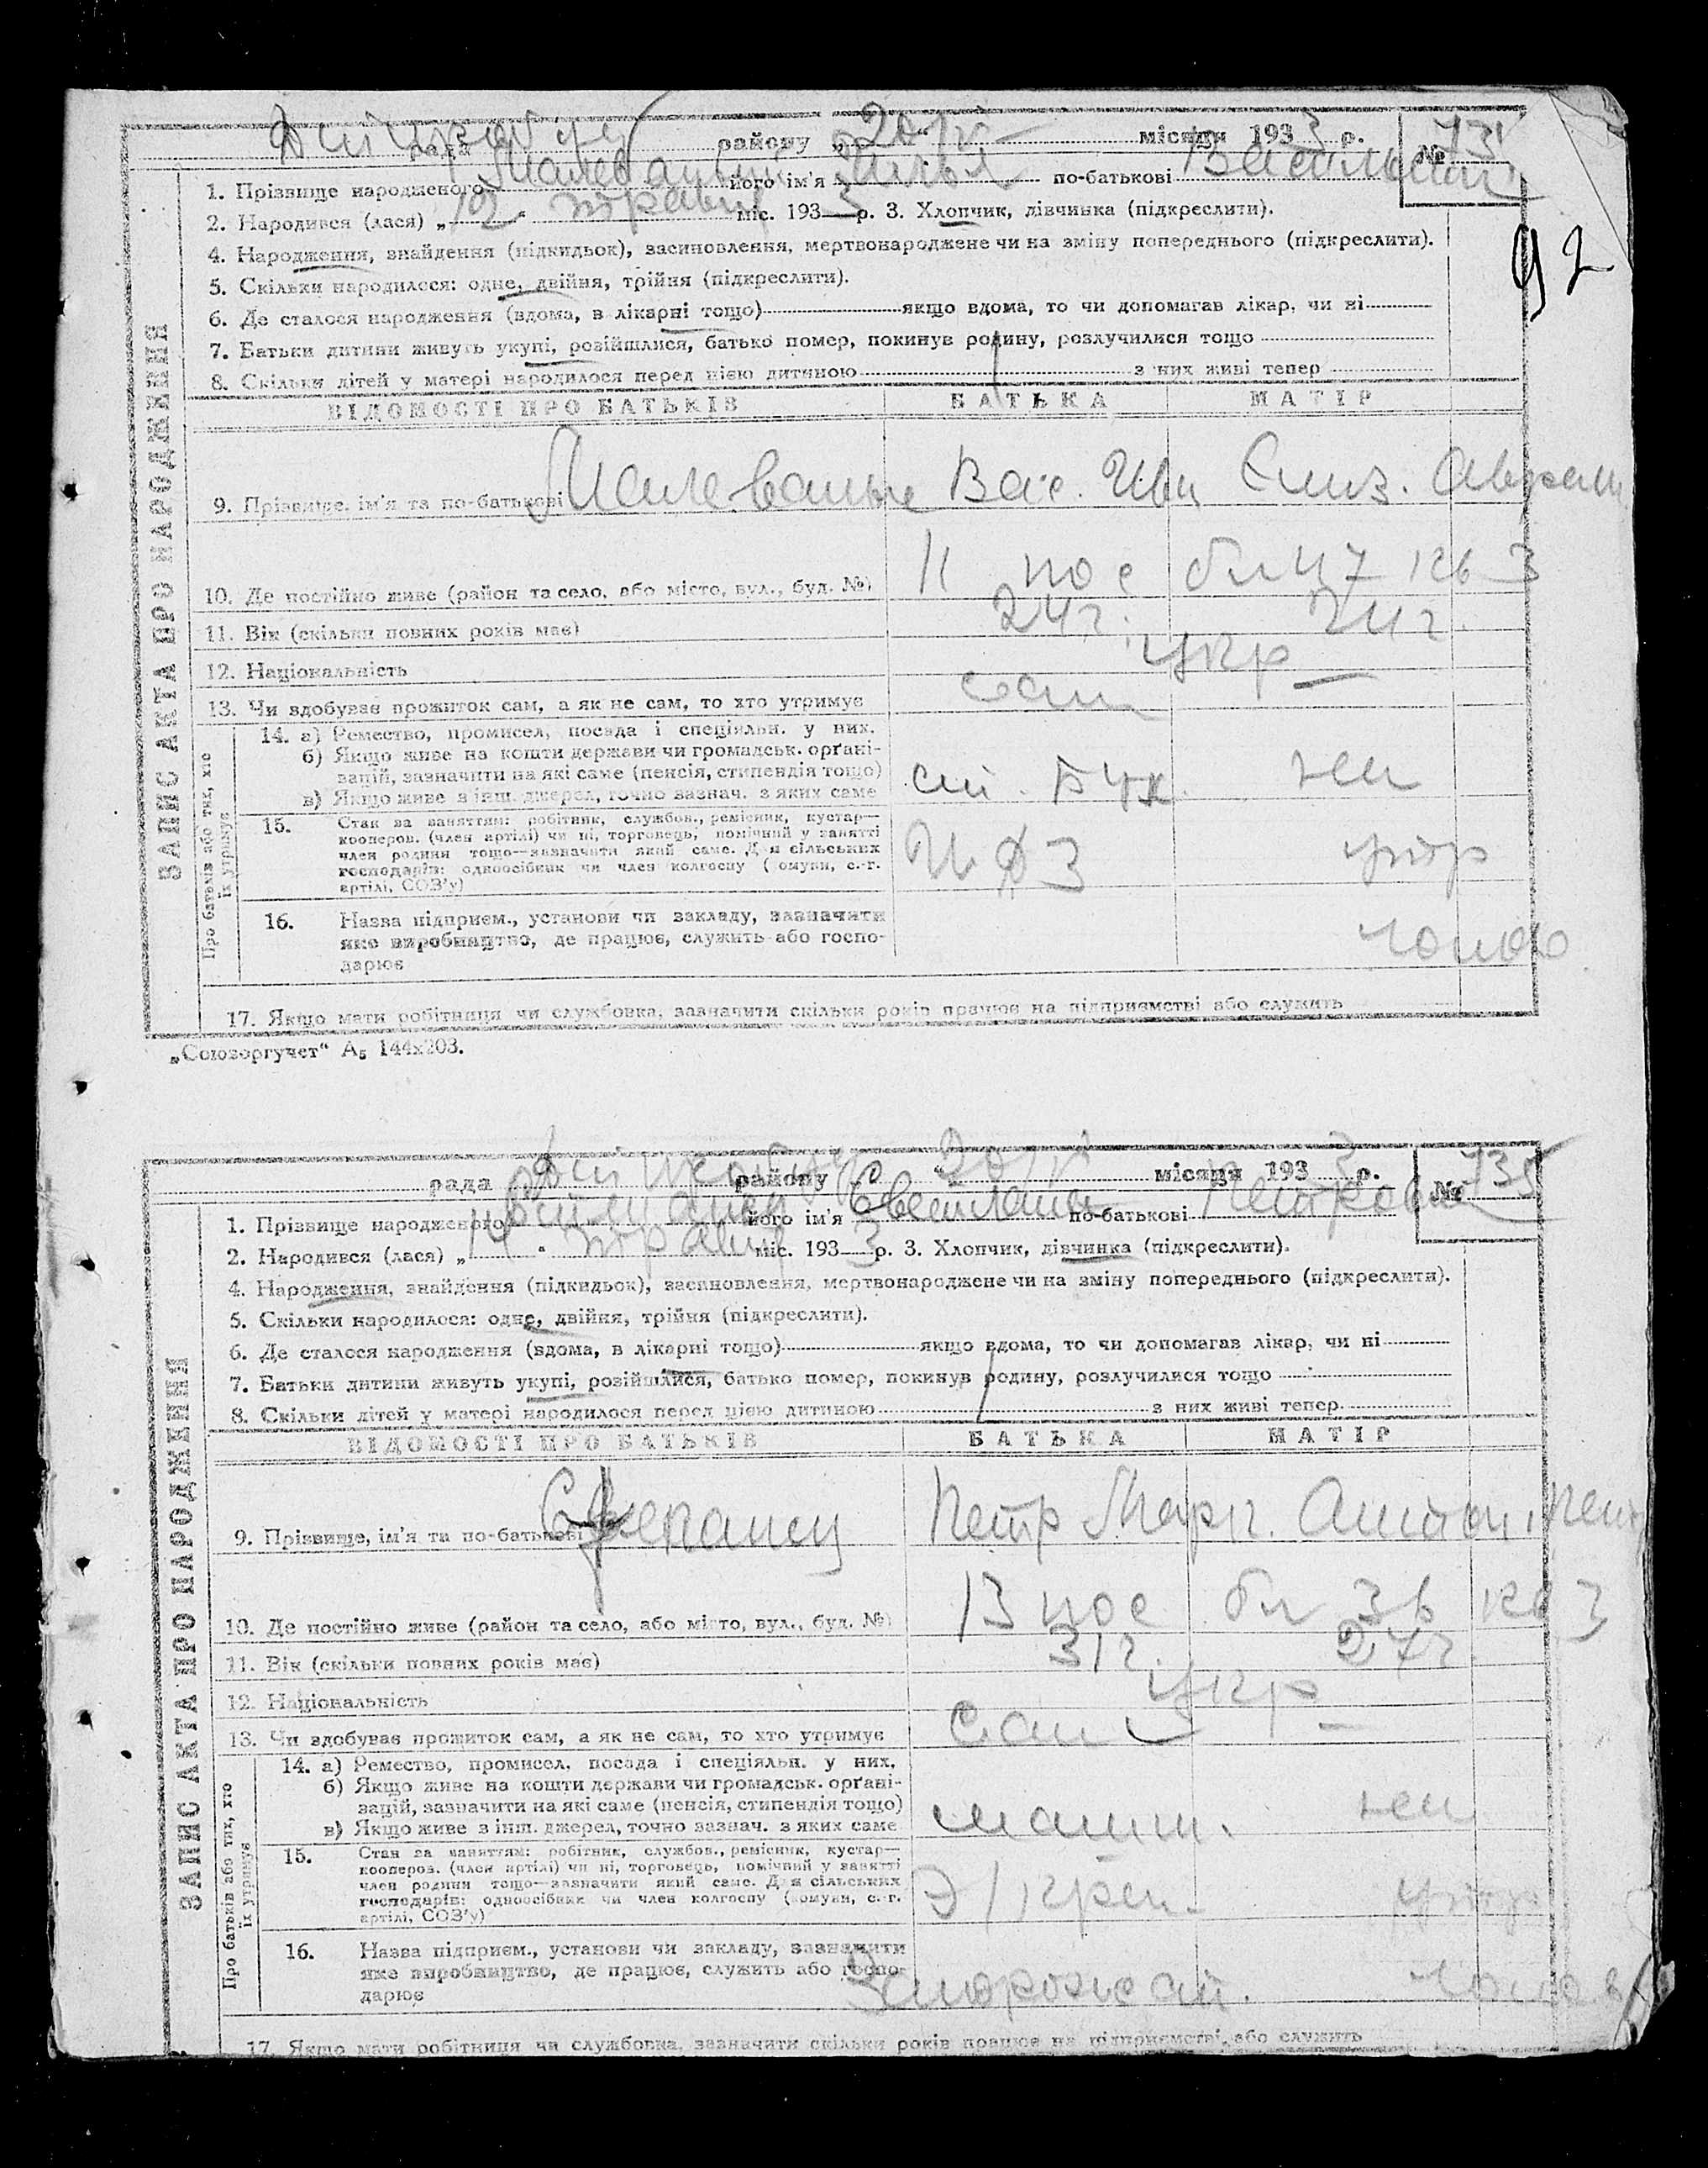 рада району „20/V місяця 1933 р. №
92
1. Прізвище народженого його ім'я по-батькові
2. Народився (лася) „12" травня міс. 1933 р. 3. Хлопчик, дівчинка (підкреслити).
4. Народження, знайдення (підкидьок), засиновлення, мертвонароджене чи на зміну попереднього (підкреслити).
5. Скільки народилося: одне, двійня, трійня (підкреслити).
6. Де сталося народження (вдома, в лікарні тощо) якщо вдома, то чи допомагав лікар, чи ні
7. Батьки дитини живуть укупі, розійшлися, батько помер, покинув родину, розлучилися тощо
8. Скільки дітей у матері народилося перед цією дитиною 1 з них живі тепер
ВІДОМОСТІ ПРО БАТЬКІВ БАТЬКА МАТІР
ЗАПИС АКТА ПРО НАРОДЖЕННЯ
9. Прізвище, ім'я та по-батькові Вас. Єлиз.
10. Де постійно живе (район та село, або місто, вул., буд. №) 11 пос бл 47 кв 3
11. Вік (скільки повних років має) 24 г. 21 г.
12. Національність укр
13. Чи здобуває прожиток сам, а як не сам, то хто утримує сам
Про батьків або тих, хто їх утримує
14. а) Ремество, промисел, посада і спеціяльн. у них.
б) Якщо живе на кошти держави чи громадськ. орґані-
зацій, зазначити на які саме (пенсія, стипендія тощо)
в) Якщо живе з інш. джерел, точно зазнач. з яких саме
15. Стан за заняттям: робітник, службов., ремісник, кустар—
коопероз. (член артілі) чи ні, торговець, помічний у занятті
член родини тощо—зазначити який саме. Для сільських
господарів: одноосібник чи член колгоспу (комуни, с.-г.
артілі, СОЗ'у)
16. Назва підприєм., установи чи закладу, зазначити
яке виробництво, де працює, служить або госпо-
дарює
17. Якщо мати робітниця чи службовка, зазначити скільки років працює на підприємстві або служить
„Союзоргучет“ А5 144х203.
рада району 20/V місяця 1933 р. № 735
1. Прізвище народженого його ім'я Светлана по-батькові Петровна
2. Народився (лася) „14" травня міс. 1933 р. 3. Хлопчик, дівчинка (підкреслити).
4. Народження, знайдення (підкидьок), засиновлення, мертвонароджене чи на зміну попереднього (підкреслити).
5. Скільки народилося: одне, двійня, трійня (підкреслити).
6. Де сталося народження (вдома, в лікарні тощо) якщо вдома, то чи допомагав лікар, чи ні
7. Батьки дитини живуть укупі, розійшлися, батько помер, покинув родину, розлучилися тощо
8. Скільки дітей у матері народилося перед цією дитиною 1 з них живі тепер
ВІДОМОСТІ ПРО БАТЬКІВ БАТЬКА МАТІР
ЗАПИС АКТА ПРО НАРОДЖЕННЯ
9. Прізвище, ім'я та по-батькові Петр
10. Де постійно живе (район та село, або місто, вул., буд. №) 13 пос бл 36 кв 3
11. Вік (скільки повних років має) 31 г. 27 г.
12. Національність укр
13. Чи здобуває прожиток сам, а як не сам, то хто утримує сам
Про батьків або тих, хто їх утримує
14. а) Ремество, промисел, посада і спеціяльн. у них.
б) Якщо живе на кошти держави чи громадськ. орґані-
зацій, зазначити на які саме (пенсія, стипендія тощо)
в) Якщо живе з інш. джерел, точно зазнач. з яких саме машин.
15. Стан за заняттям: робітник, службов., ремісник, кустар—
коопероз. (член артілі) чи ні, торговець, помічний у занятті
член родини тощо—зазначити який саме. Для сільських
господарів: одноосібник чи член колгоспу (комуни, с.-г.
артілі, СОЗ'у)
16. Назва підприєм., установи чи закладу, зазначити
яке виробництво, де працює, служить або госпо-
дарює
17. Якщо мати робітниця чи службовка, зазначити скільки років працює на підприємстві, або служить